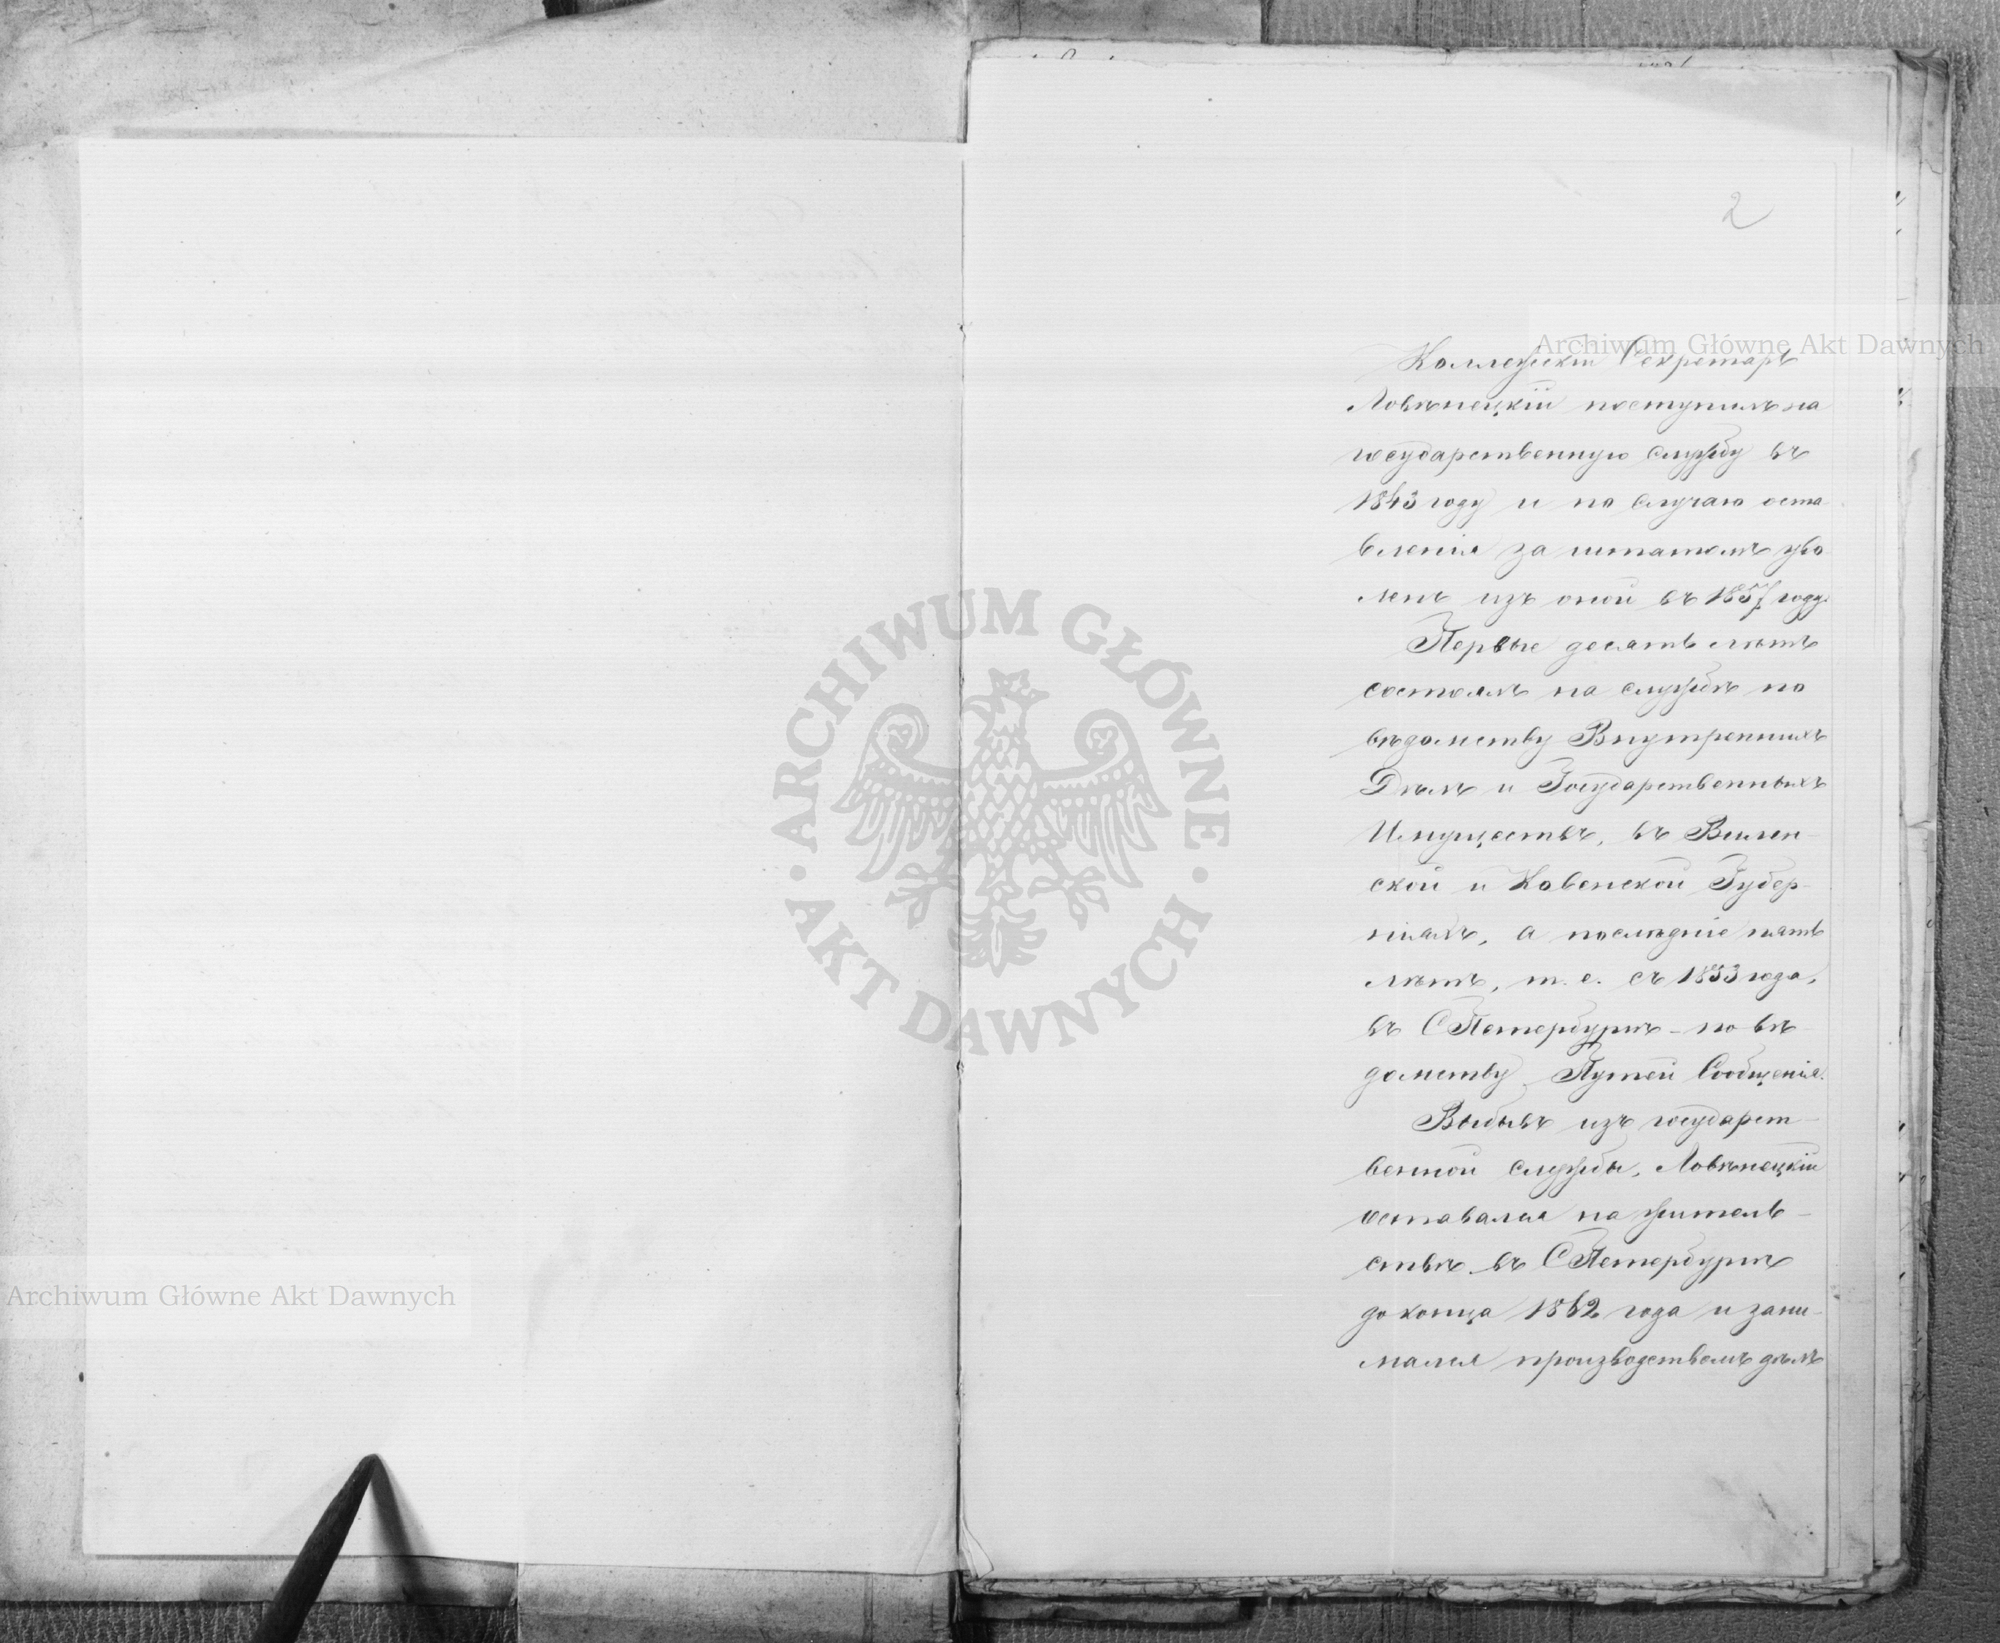 2
Коллежскій Секретарь
Ловѣнецкій поступилъ на
государственную службу въ
1843 году и по случаю оста
вленія за штатомъ уво
ленъ изъ оной въ 1857 году.
Первые десять лѣтъ
состоялъ на службѣ по
вѣдомству Внутреннихъ
Дѣлъ и Государственныхъ
Имуществъ, въ Вилен-
ской и Ковенской Губер-
ніяхъ, а послѣдніе пять
лѣтъ, т. е. съ 1853 года,
въ С Петербургѣ - по вѣ
домству Путей Сообщенія.
Выбывъ изъ государст-
венной службы, Ловѣнецкій
оставался на житель-
ствѣ въ С Петербургѣ
до конца 1862 года и зани-
мался производствомъ дѣлъ
Archiwum Główne Akt Dawnych
ARCHIWUM GŁÓWNE · AKT DAWNYCH ·
Archiwum Główne Akt Dawnych